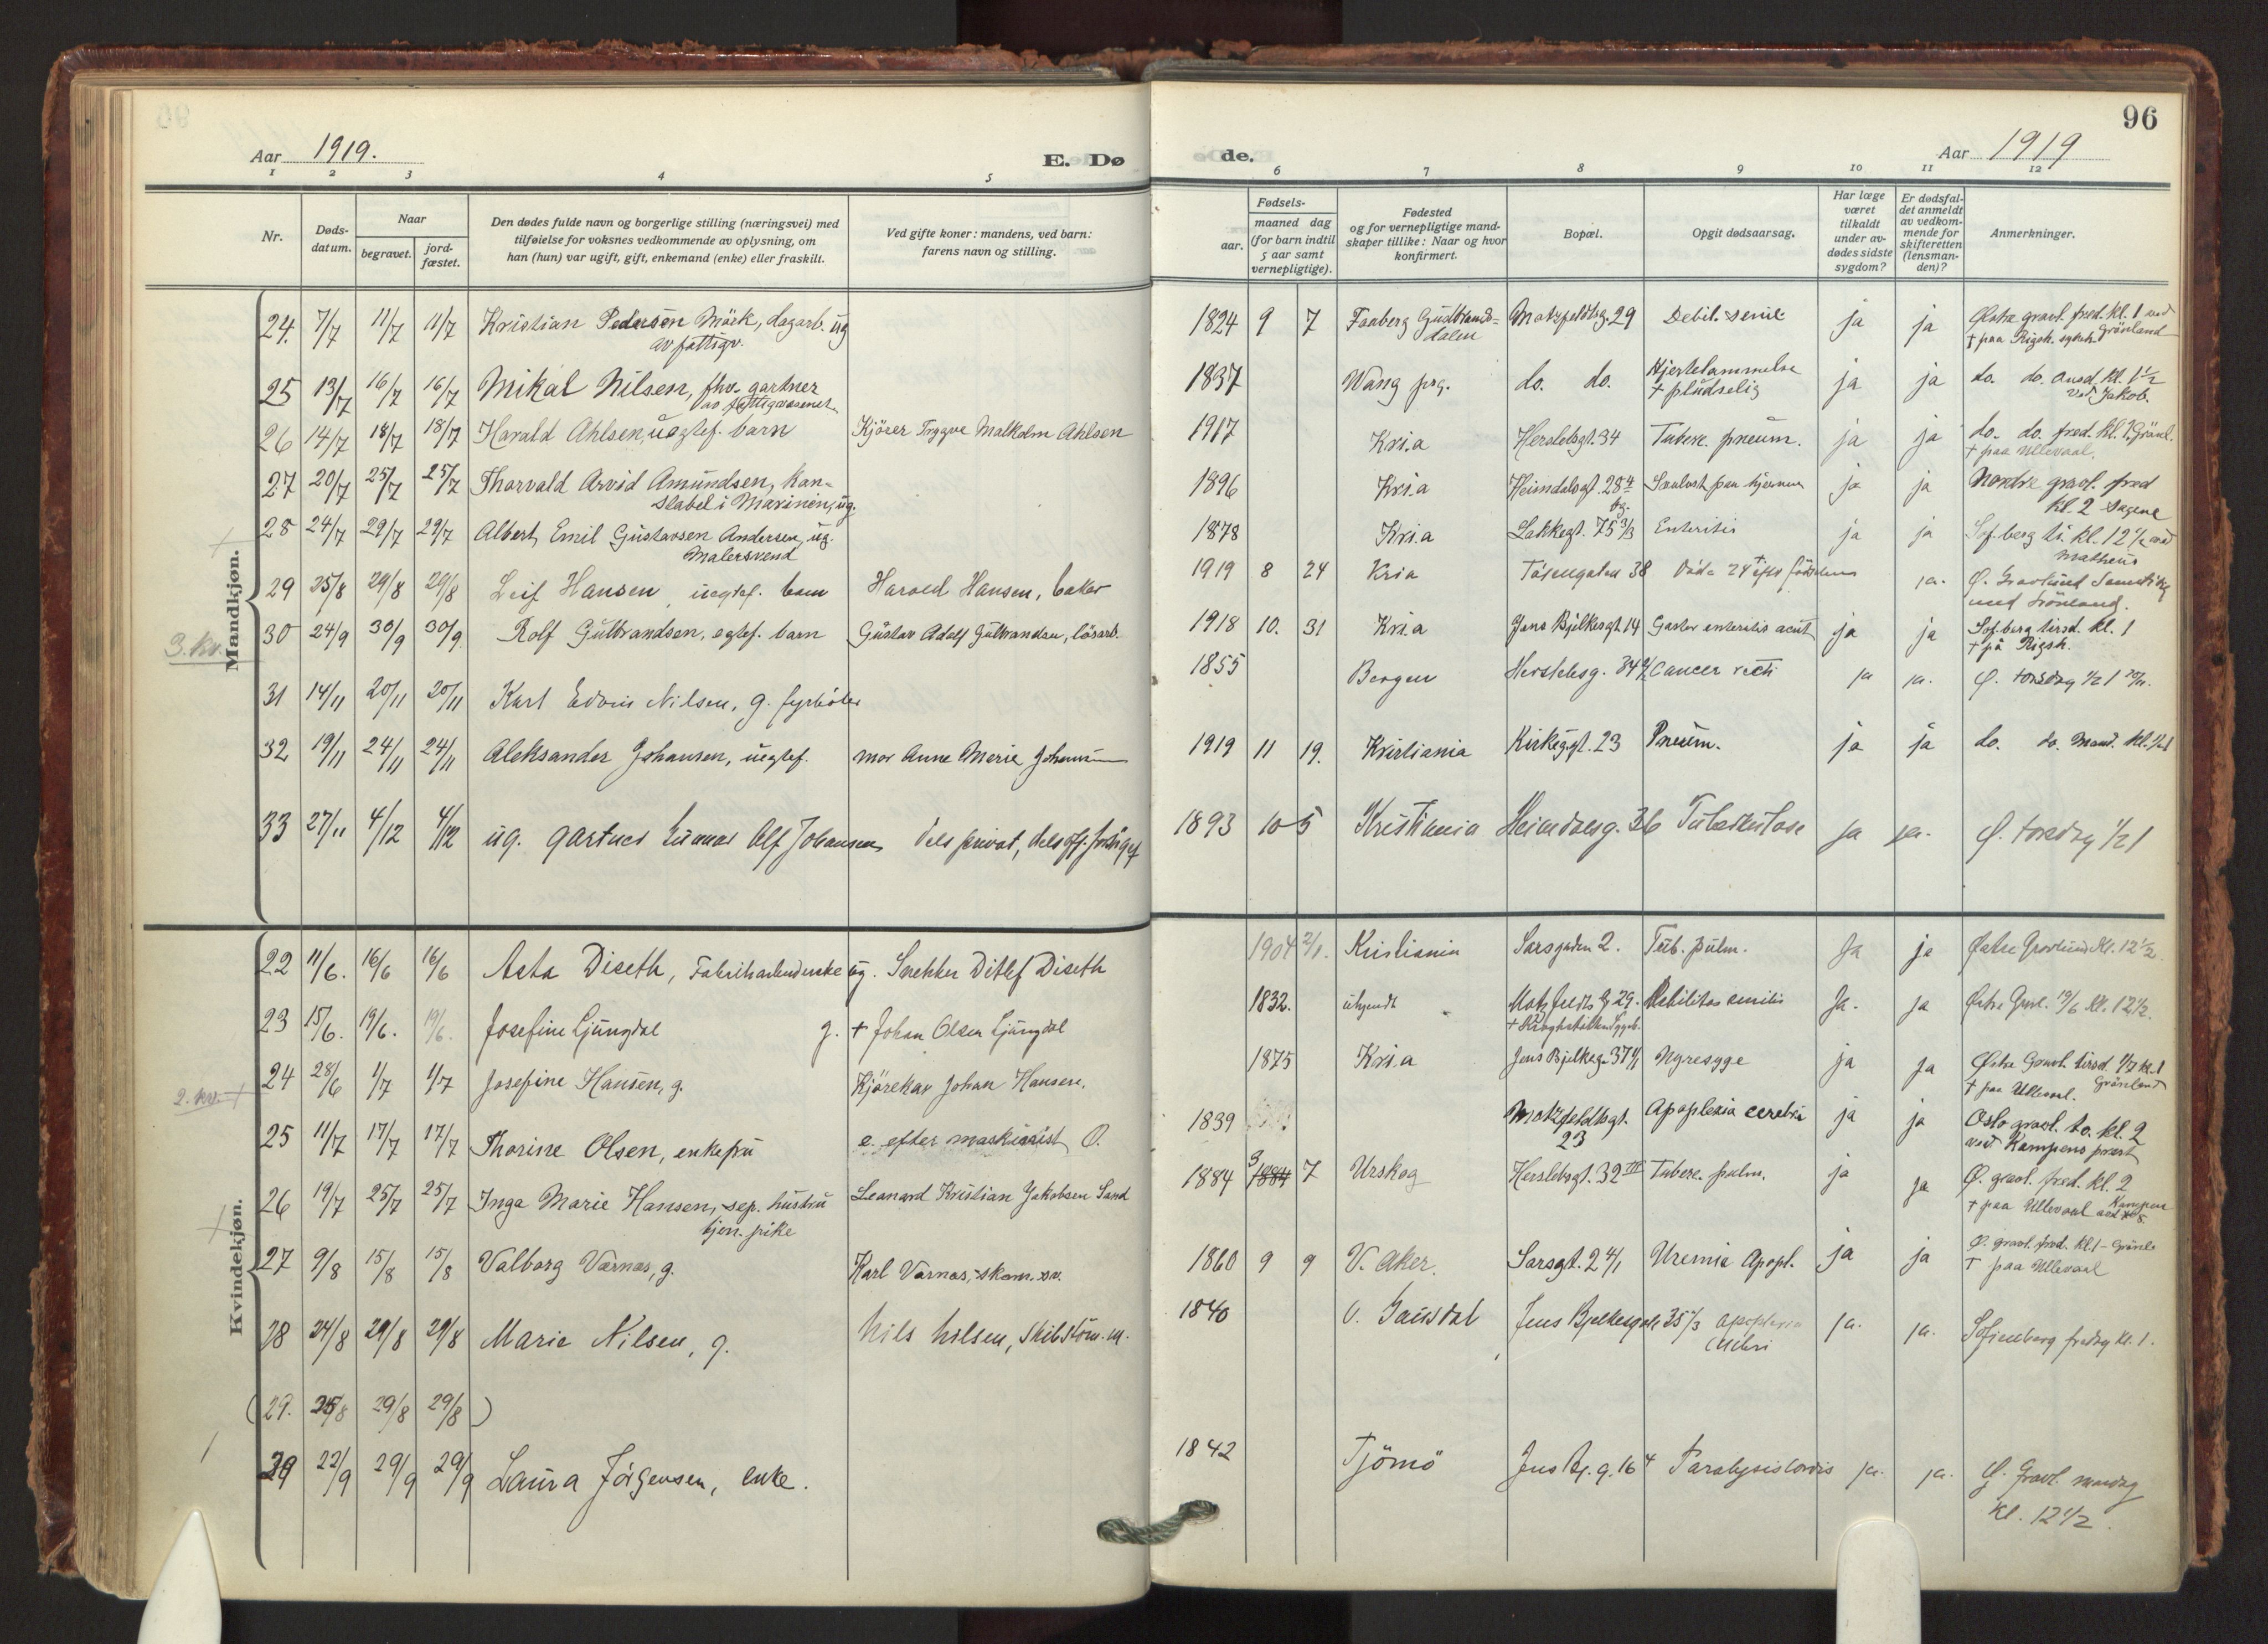 96
Aar 1919.
E. Dø
de.
Aar 1919
1 2 3 4 5 6 7 8 9 10 11 12
Nr.
Døds-
datum.
Naar
begravet.
jord-
fæstet.
Den dødes fulde navn og borgerlige stilling (næringsvei) med
tilføielse for voksnes vedkommende av oplysning, om
han (hun) var ugift, gift, enkemand (enke) eller fraskilt.
Ved gifte koner: mandens, ved barn:
farens navn og stilling.
Fødsels-
aar.
maaned dag
(for barn indtil
5 aar samt
vernepligtige).
Fødested
og for vernepligtige mand-
skaper tillike: Naar og hvor
konfirmert.
Bopæl.
Opgit dødsaarsag.
Har læge
været
tilkaldt
under av-
dødes sidste
sygdom?
Er dødsfal-
det anmeldt
av vedkom-
mende for
skifteretten
(lensman-
den)?
Anmerkninger.
Mandkjøn.
24. 7/7 11/7 11/7 Kristian Pedersen Mörk, dagarb. ug 1824 9 7 Faaberg Gudbrands- Motzfeldtsg. 29 Debil. senil. ja ja Østre gravl. fred. kl. 1 ved
av fattigv. dalen † paa Rigsh. Grönland
25 13/7 16/7 16/7 Mikal Nilsen, fhv. gartner 1837 Wang prg. do. do. Hjertelammelse ja ja do. do. onsd. kl. 1 1/2
av fattigvæsenet † pludselig ved Jakob.
26 14/7 18/7 18/7 Harald Ahlsen, uegtef. barn Kjörer Trygve Malkolm Ahlsen 1917 Kri.a Herslebsgt. 34 Taberc. pneum. ja ja do. do. fred. kl. 1 Grönl.
† paa Ullevaal.
27 20/7 25/7 25/7 Thorvald Arvid Amundsen, kon- 1896 Kri.a Heimdalsgt. 28 4 ja ja Nordre gravl. fred
stabel i Marinen, ug. kl. 2 Sagene
28 24/7 29/7 29/7 Albert Emil Gustavsen Andersen, ug. 1878 Kri.a Lakkegt. 75 3/3 Enteritis ja ja Sof.berg ti. kl. 12 1/2 ved
Malersvend Matheus
29 25/8 29/8 29/8 Leif Hansen uegtef. barn Harald Hansen, baker 1919 8 24 Kria Töiengaten 38 Döde 24 t efter födselen ja.
3. kv.
30 24/9 30/9 30/9 Rolf Gulbrandsen, egtef. barn Gustav Adolf Gulbrandsen, lösarb. 1918 10. 31 Kri.a Jens Bjelkesgt. 14 Gastro enteritis acut ja ja Sof.berg tirsd. kl. 1
† på Rigsh.
31 14/11 20/11 20/11 Karl Edvin Nilsen, g. fyrböter 1855 Bergen Herslebsg. 34 Cancer recti ja ja. Ø. torsdag 1/2 1 20/11.
32 19/11 24/11 24/11 Aleksander Johansen, uegtef. mor Anne Marie Johansen 1919 11 19. Kristiania Kirkegt. 23 Pneum. ja ja do. do. Mand. kl. 1/2 1
33 27/11 4/12 4/12 ug. gartner Gunnar Alf Johansen dels privat, dels off. 1893 10 5 Kristiania Heimdalsg. 36 Tuberkulose ja ja. Ø. torsdag 1/2 1
Kvindekjøn.
22 11/6. 16/6 16/6 Asta Diseth, Fabrikarbeiderske ug. Snekker Ditlef Diseth 1904 2/1. Kristiania Sarsgaden 2. Tub. pulm. Ja ja Østre Gravlund Kl. 12 1/2
23 15/6. 19/6. 19/6. Josefine Ljungdal g. † Johan Olsen Ljungdal 1832. ukjendt Motzfeldts g 29. Debilitas senilis Ja. ja Østre Gravl. 19/6 Kl. 12 1/2.
2. kv.
24 28/6 1/7 1/7 Josefine Hansen, g. Kjörekar Johan Hansen. 1875 Kri.a Jens Bjelkesg. 37 Nyresyge ja ja Østre Gravl. tirsd. 1/7 kl. 1
† paa Ullevaal. Grönland
25 11/7 17/7 17/7 Thorine Olsen, enkefru e. efter maskinist O. 1839 Motzfeldtsgt. Apoplexia cerebri ja ja Oslo gravl. to. kl. 2
23 ved Kampens prest
26 19/7 25/7 25/7 Inga Marie Hansen, sep. hustru Leonard Kristian Jakobsen Sand 1884 3 1884 7 Urskog Herslebsgt. 32 III Taberc. pulm. ja ja Ø. gravl. fred. kl. 2
tjen. pike † paa Ullevaal Kampen
27 9/8 15/8 15/8 Valborg Varnas, g. Karl Varnas, skom. sv. 1860 9 9 V. Aker. Sarsgt. 2 4/1 Uremia Apopl. ja ja Ø. gravl. fred. kl. 1 - Grönl.
† paa Ullevaal
28 24/8 29/8 29/8 Marie Nilsen, g. Nils Nilsen, Skibstöm.m. 1840 O. Gausdal Jens Bjelkesgate 35 2/3 apoplexia ja. ja. Sofienberg fredag Kl. 1.
cerebri
(29. 25/8 29/8 29/8)
29 22/9 29/9 29/9 Laura Jörgensen, enke. 1842 Tjömö Jens Bj. g. 16 4 Paralysis cordis ja. ja. Ø. Gravl. mandag
Kl. 12 1/2.